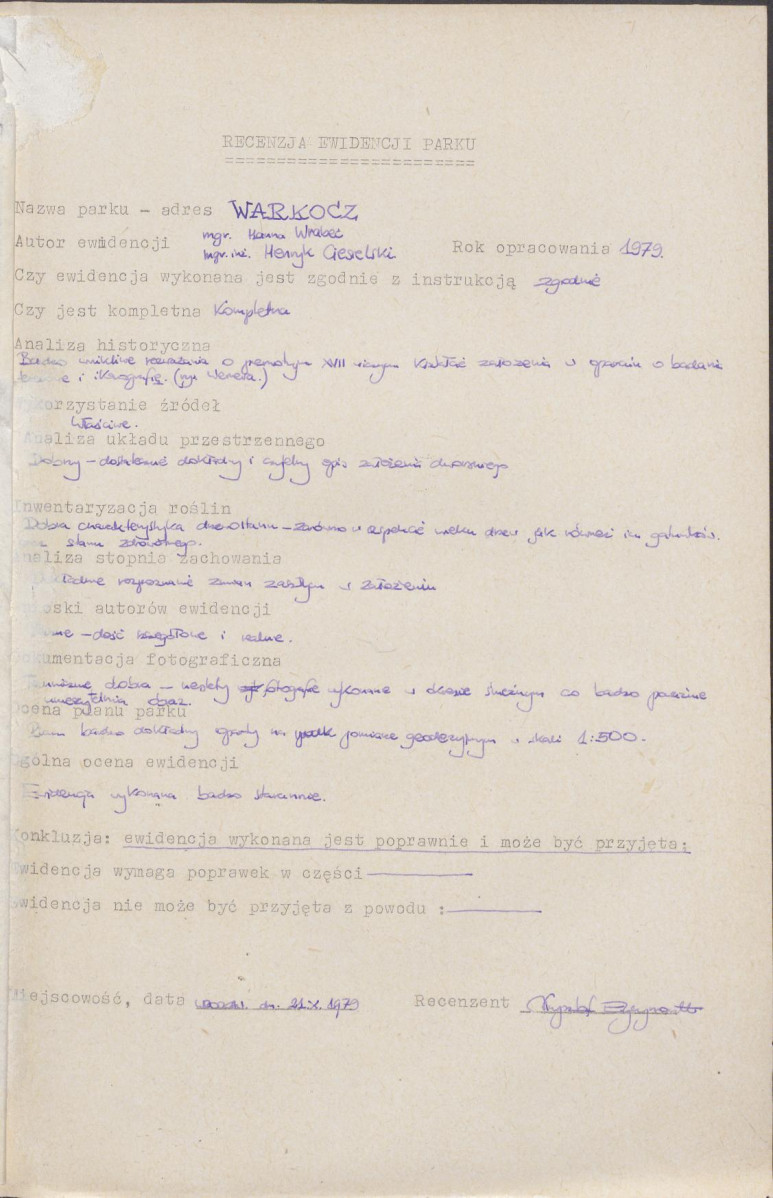 RECENZJA EWIDENCJI PARKU
========================
Nazwa parku - adres WARKOCZ
Autor ewidencji mgr. Hanna Wrabec
mgr. inż. Henryk Ciesielski Rok opracowania 1979.
Czy ewidencja wykonana jest zgodnie z instrukcją zgodnie
Czy jest kompletna Kompletna
Analiza historyczna
Bardzo wnikliwe rozważania o XVII założenia w oparciu o badania
i ikonografię. (Wernera.)
korzystanie źródeł
Właściwe.
Analiza układu przestrzennego
Dobry - dostatecznie dokładny i czytelny opis założenia dworskiego
Inwentaryzacja roślin
Dobra charakterystyka drzewostanu - zarówno w aspekcie wieku drzew jak również ich gatunków.
stanu zdrowotnego.
naliza stopnia zachowania
rozpoznanie zmian zaszłych w założeniu
oski autorów ewidencji
- dość szczegółowe i realne.
okumentacja fotograficzna
dobra - niestety fotografie wykonane w okresie śnieżnym co bardzo poważnie
obraz.
cena planu parku
bardzo dokładny oparty na pomiarze geodezyjnym w skali 1:500.
gólna ocena ewidencji
Ewidencja wykonana bardzo starannie.
Konkluzja: ewidencja wykonana jest poprawnie i może być przyjęta;
widencja wymaga poprawek w części
widencja nie może być przyjęta z powodu :
Miejscowość, data dn. 21.X.1979 Recenzent